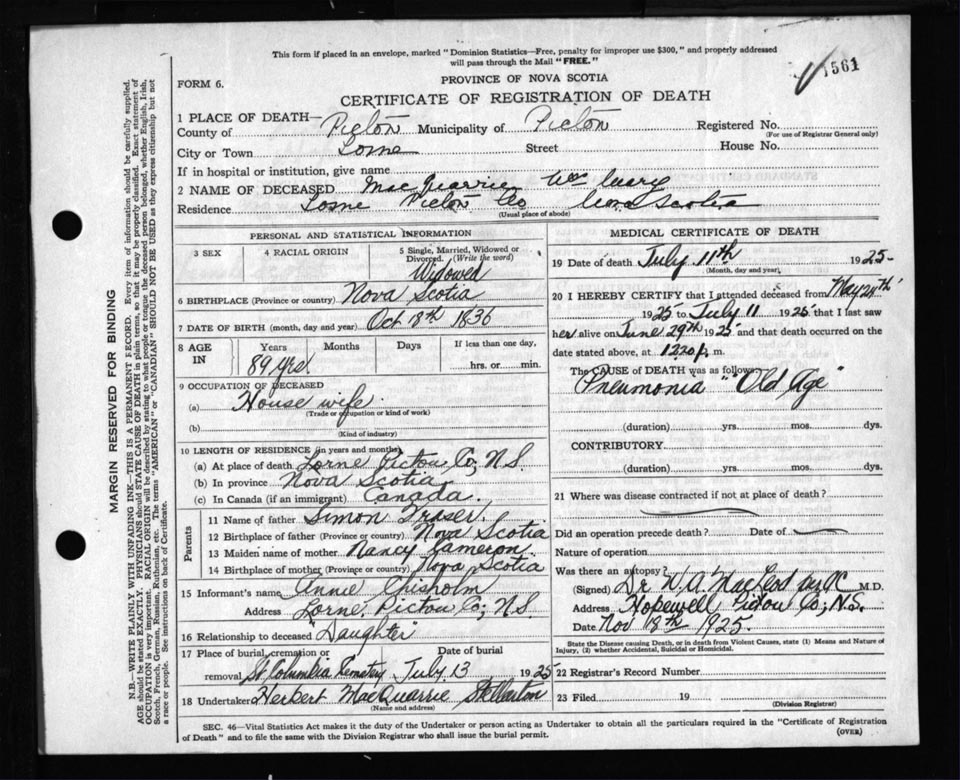 This form if placed in an envelope, marked "Dominion Statistics—Free, penalty for improper use $300," and properly addressed
will pass through the Mail "FREE."
1561
FORM 6.
PROVINCE OF NOVA SCOTIA
CERTIFICATE OF REGISTRATION OF DEATH
1 PLACE OF DEATH—
County of Pictou Municipality of Pictou Registered No.
(For use of Registrar General only)
City or Town Lorne Street House No.
If in hospital or institution, give name
2 NAME OF DECEASED MacQuarrie Mrs
Residence Lorne Pictou Co Nova Scotia
(Usual place of abode)
PERSONAL AND STATISTICAL INFORMATION
3 SEX
4 RACIAL ORIGIN
5 Single, Married, Widowed or
Divorced. (Write the word)
Widowed
6 BIRTHPLACE (Province or country) Nova Scotia
7 DATE OF BIRTH (month, day and year) Oct 18th 1836
8 AGE IN
Years Months Days If less than one day,
89 yrs hrs. or min.
9 OCCUPATION OF DECEASED
(a) House wife
(Trade or occupation or kind of work)
(b)
(Kind of industry)
10 LENGTH OF RESIDENCE (in years and months)
(a) At place of death Lorne Pictou Co; N.S.
(b) In province Nova Scotia
(c) In Canada (if an immigrant) Canada.
Parents
11 Name of father Simon Fraser.
12 Birthplace of father (Province or country) Nova Scotia
13 Maiden name of mother Nancy Cameron.
14 Birthplace of mother (Province or country) Nova Scotia
15 Informant's name Annie Chisholm
Address Lorne, Pictou Co; N.S.
16 Relationship to deceased "Daughter"
17 Place of burial, cremation or Date of burial
removal St Columbia Cemetery July 13 1925
18 Undertaker Herbert MacQuarrie Stellarton
(Name and address)
MEDICAL CERTIFICATE OF DEATH
19 Date of death July 11th 1925-
(Month, day and year)
20 I HEREBY CERTIFY that I attended deceased from May 24th
1925 to July 11 1925 that I last saw
her alive on June 29th 1925 and that death occurred on
date stated above, at 12.20 p. m.
The CAUSE of DEATH was as follows
Pneumonia "Old Age"
(duration) yrs. mos. dys.
CONTRIBUTORY
(duration) yrs. mos. dys.
21 Where was disease contracted if not at place of death?
Did an operation precede death? Date of
Nature of operation
Was there an autopsy?
(Signed) Dr W.A. MacLeod M.D.
Address Hopewell Pictou Co; N.S.
Date Nov 18th 1925.
State the Disease causing Death, or in death from Violent Causes, state (1) Means and Nature of
Injury, (2) whether Accidental, Suicidal or Homicidal.
22 Registrar's Record Number
23 Filed 19
(Division Registrar)
SEC. 46—Vital Statistics Act makes it the duty of the Undertaker or person acting as Undertaker to obtain all the particulars required in the "Certificate of Registration
of Death" and to file the same with the Division Registrar who shall issue the burial permit.
(OVER)
MARGIN RESERVED FOR BINDING
N.B.—WRITE PLAINLY WITH UNFADING INK—THIS IS A PERMANENT RECORD. Every item of information should be carefully supplied.
AGE should be stated EXACTLY. PHYSICIANS should STATE CAUSE OF DEATH in plain terms, so that it may be properly classified. Exact statement of
OCCUPATION is very important. RACIAL ORIGIN will be described by stating to what people or tongue the deceased person belonged, whether English, Irish,
Scotch, French, German, Russian, Ruthenian, etc. The terms "AMERICAN" or "CANADIAN" SHOULD NOT BE USED as they express citizenship but not
a race or people. See instructions on back of Certificate.